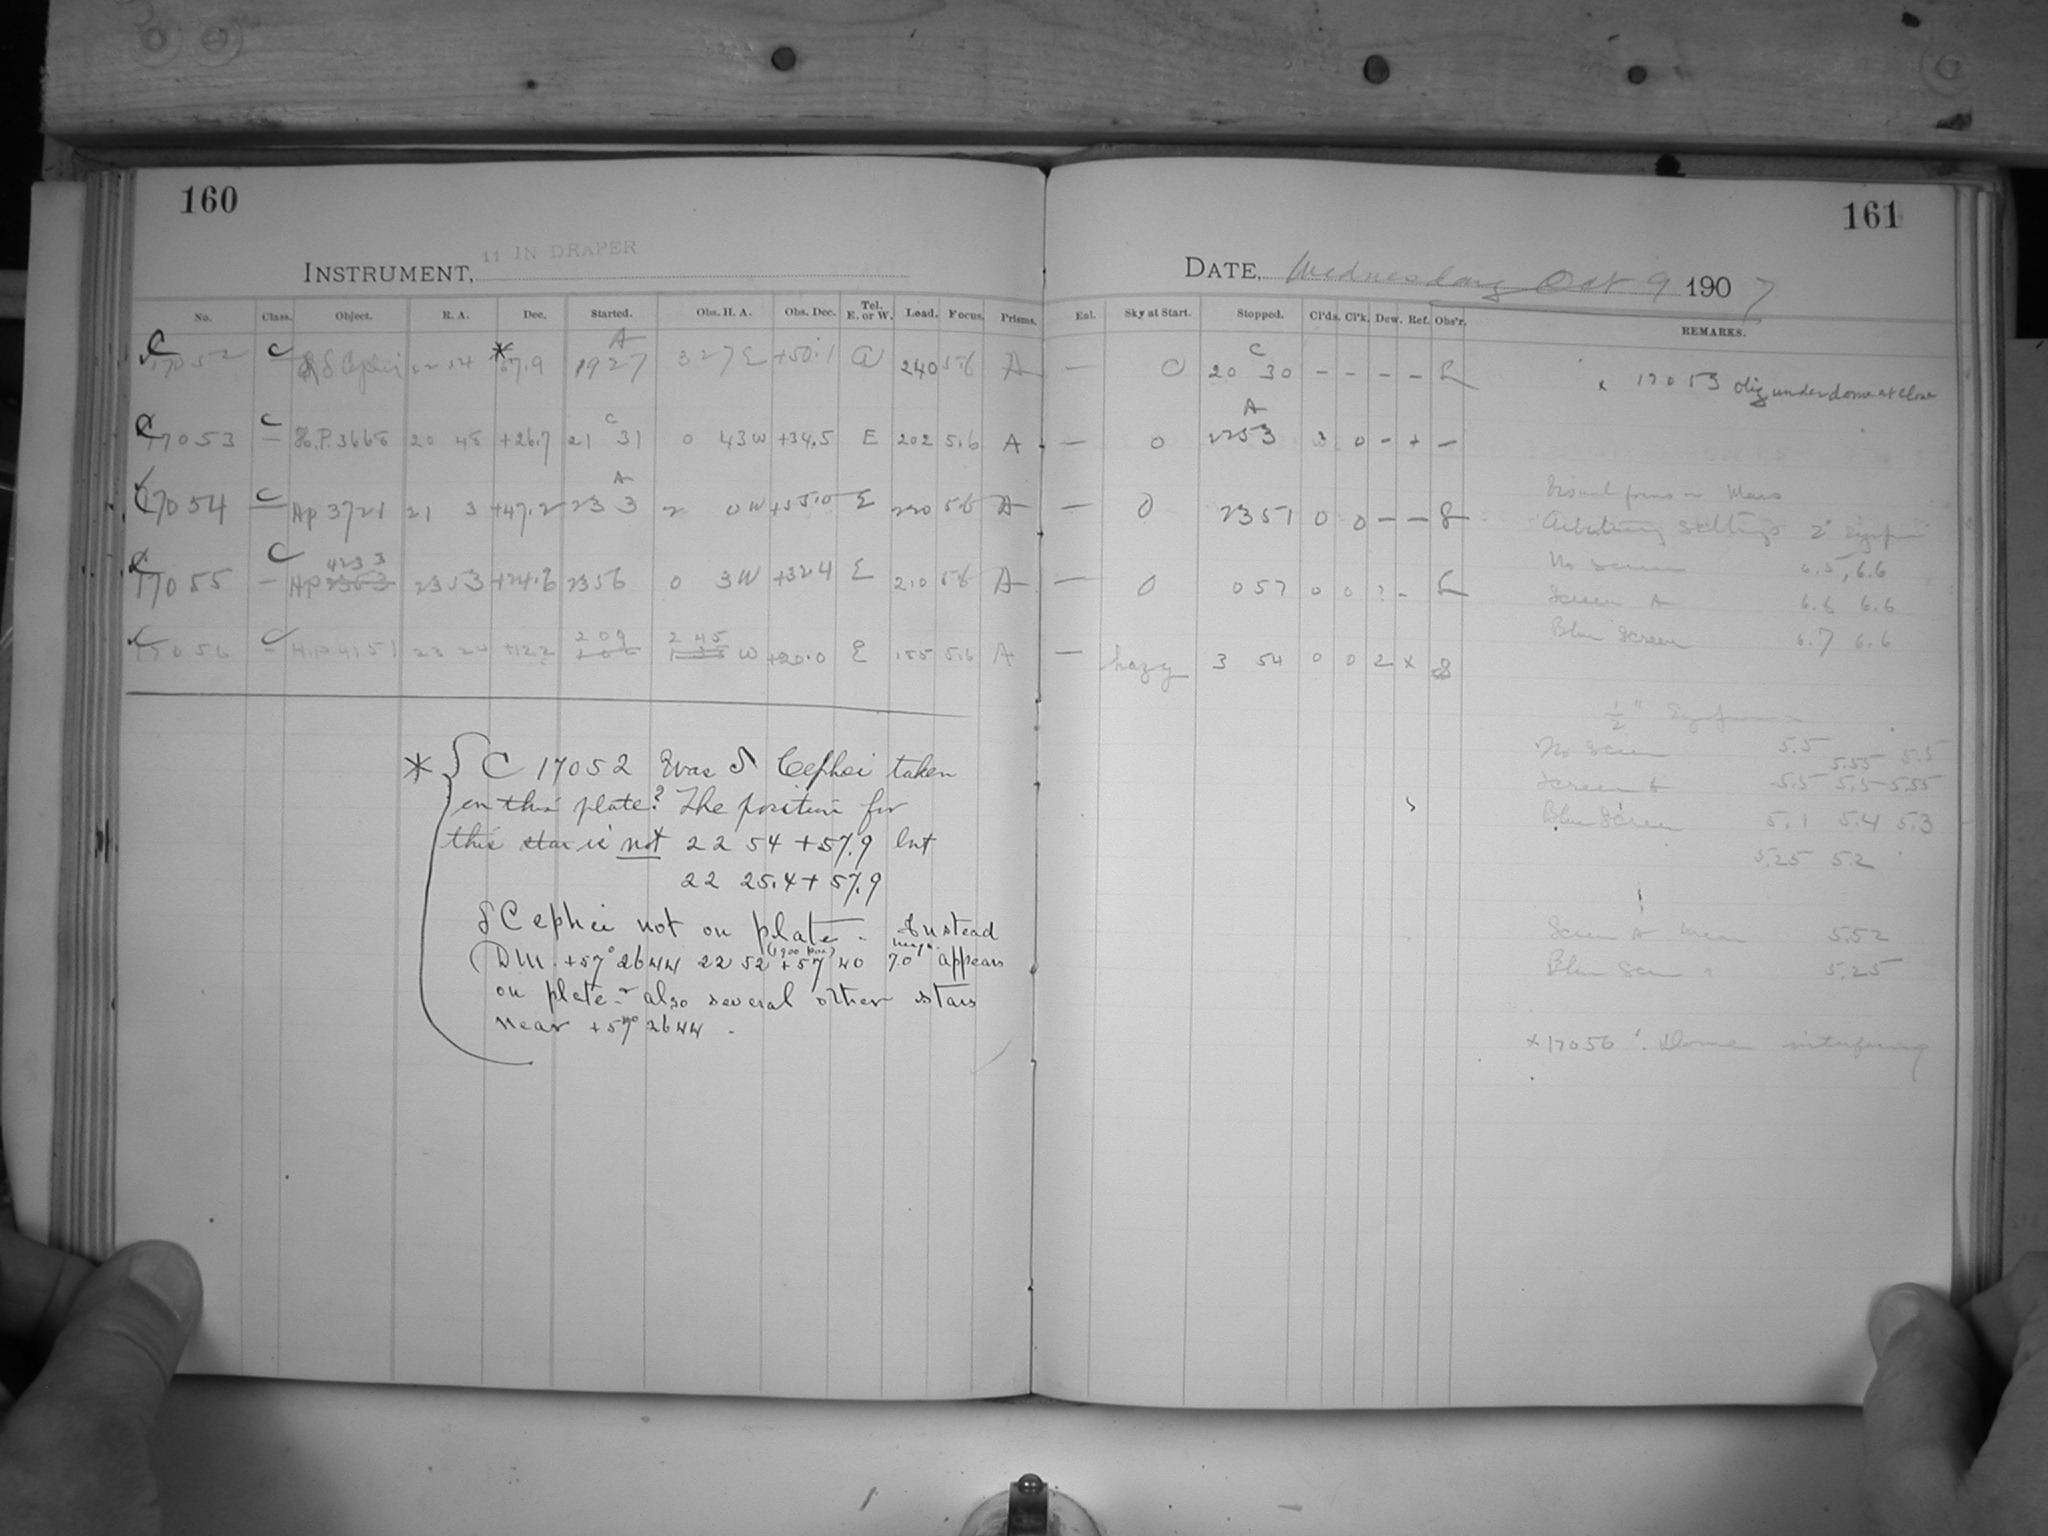 160
11 IN DRAPER
INSTRUMENT,
No. Class. Object. R. A. Dec. Started. Obs. H. A. Obs. Dec. Tel. E. or W. Load. Focus. Prisms.
C 17052 C δ Cephei 22 54 * 57.9 A 19 27 3 27 E +50.1 W 240 5.6 A
C 17053 C H.P. 3668 20 48 +26.7 C 21 31 0 43 W +34.5 E 202 5.6 A
C 17054 C Hp 3721 21 3 +47.2 A 23 3 2 0 W +55.0 E 220 5.6 A
C 17055 C Hp 4233 23 53 +24.6 23 56 0 3 W +32.4 E 210 5.6 A
C 17056 C H.P. 4151 +12.2 2 09 2 45 W +20.0 E 155 5.6 A
* C 17052 Was δ Cephei taken
on this plate? The position for
this star is not 22 54 +57.9 but
22 25.4 + 57.9
δ Cephei not on plate - Instead
DM. +57° 2644 22 52 (1900 pos.) +57 40 magn. 7.0 appears
on plate - also several other stars
near +57° 2644 -
161
DATE, Wednesday Oct 9 1907
Eal. Sky at Start. Stopped. Cl'ds. Cl'k. Dew. Ref. Obs'r. REMARKS.
— 0 C 20 30 - - - -
— 0 A 22 53 3 0 - + -
— 0 23 51 0 0 - - 8
— 0 0 57 0 0 ? -
— hazy 3 54 0 0 2 x 8
x 17053 obj under dome at close
Visual focus on Mars
Arbitrary Settings 2"
No screen 6.5, 6.6
Screen A 6.6 6.6
Blue Screen 6.7 6.6
1/2" Eyepiece
No Screen 5.5 5.55 5.5
Screen A 5.5 5.5 5.55
Blue Screen 5.1 5.4 5.3
5.25 5.2
Screen A mean 5.52
Blue Screen 5.25
x 17056 . Dome interfering